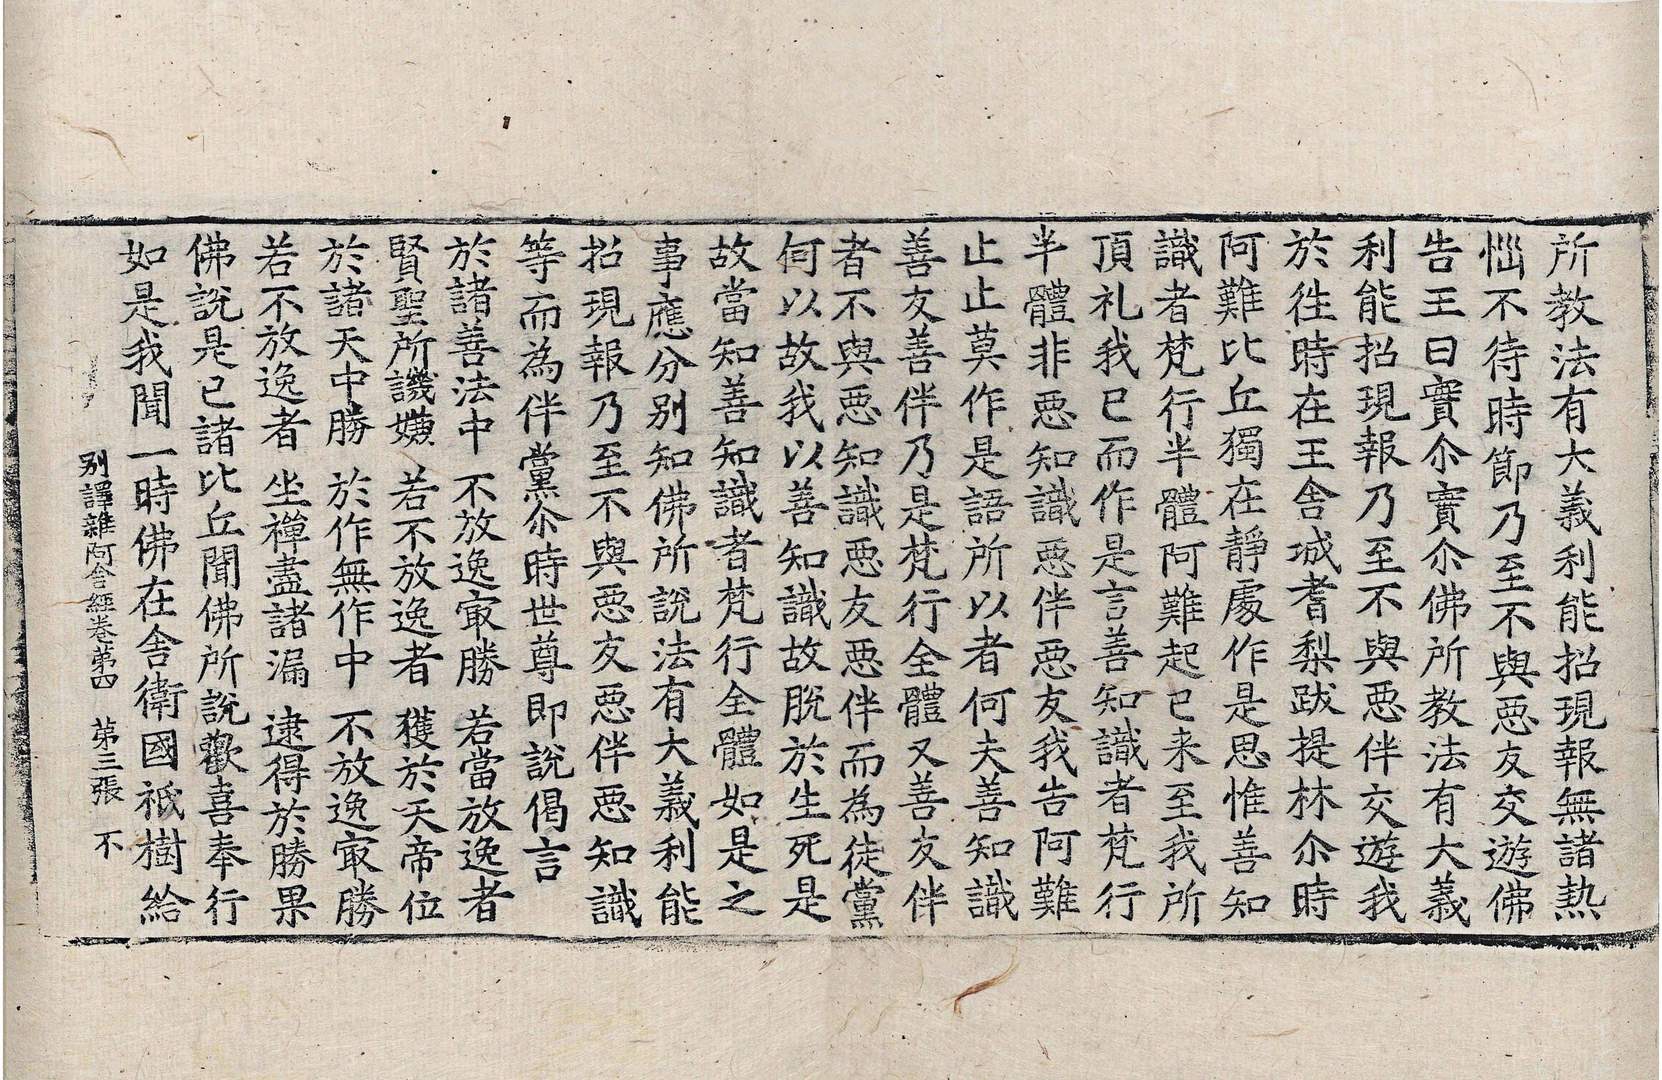 所教法有大義利能招現報無諸熱
惱不待時節乃至不與惡友交遊佛
告王曰實尒實尒佛所教法有大義
利能招現報乃至不與惡伴交遊我
於徃時在王舍城耆梨跋提林尒時
阿難比丘獨在靜處作是思惟善知
識者梵行半體阿難起已来至我所
頂礼我已而作是言善知識者梵行
半體非惡知識惡伴惡友我告阿難
止止莫作是語所以者何夫善知識
善友善伴乃是梵行全體又善友伴
者不與惡知識惡友惡伴而為徒黨
何以故我以善知識故脫於生死是
故當知善知識者梵行全體如是之
事應分別知佛所說法有大義利能
招現報乃至不與惡友惡伴惡知識
等而為伴黨尒時世尊即說偈言
於諸善法中 不放逸㝡勝 若當放逸者
賢聖所譏嫌 若不放逸者 獲於天帝位
於諸天中勝 於作無作中 不放逸㝡勝
若不放逸者 坐禪盡諸漏 逮得於勝果
佛說是已諸比丘聞佛所說歡喜奉行
如是我聞一時佛在舍衛國祇樹給
別譯雜阿含經卷苐四 苐三張 不